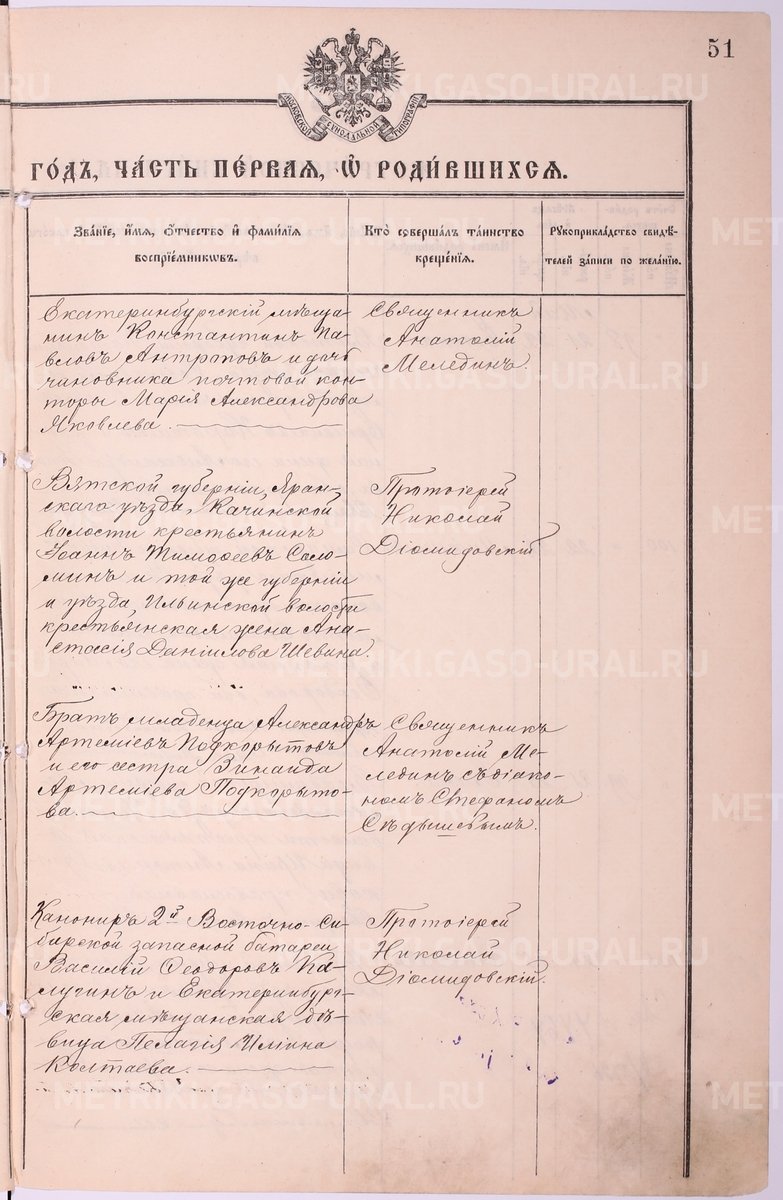 51
МОСКОВСКОЙ СѴНОДАЛЬНОЙ ТИПОГРАФІИ
METRIKI.GASO-URAL.RU
ГО́ДЪ, ЧА́СТЬ ПЕ́РВАЯ, Ѡ҆ РОДИ́ВШИХСѦ.
Зва́нїе, и҆́мя, ѻ҆́тчество и҆ фами́лїя
воспрїе́мникѡвъ.
Кто̀ соверша́лъ та́инство
креще́нїя.
Рꙋкоприкла́дство свидѣ́-
телей за́писи по жела́нїю.
Екатеринбургскій мѣща-
нинъ Константинъ Па-
вловъ Антраповъ и дочь
чиновника почтовой кон-
торы Марія Александрова
Яковлева.
Священникъ
Анатолій
Мелединъ.
Вятской губерніи, Яран-
скаго уѣзда, Качинской
волости крестьянинъ
Іоаннъ Тимофеевъ Соло-
минъ и той же губерніи
и уѣзда, Ильинской волости
крестьянская жена Ана-
стасія Даніилова Шевнина
Протоіерей
Николай
Діомидовскій
Братъ младенца Александръ
Артеміевъ Подкорытовъ
и его сестра Зинаида
Артеміева Подкорыто-
ва.
Священникъ
Анатолій Ме-
лединъ съ діако-
номъ Стефаномъ
Канониръ 2й Восточно-Си-
бирской запасной батареи
Василій Ѳеодоровъ Ка-
лугинъ и Екатеринбург-
ская мѣщанская дѣ-
вица Пелагія Иліина
Колтаева.
Протоіерей
Николай
Діомидовскій.